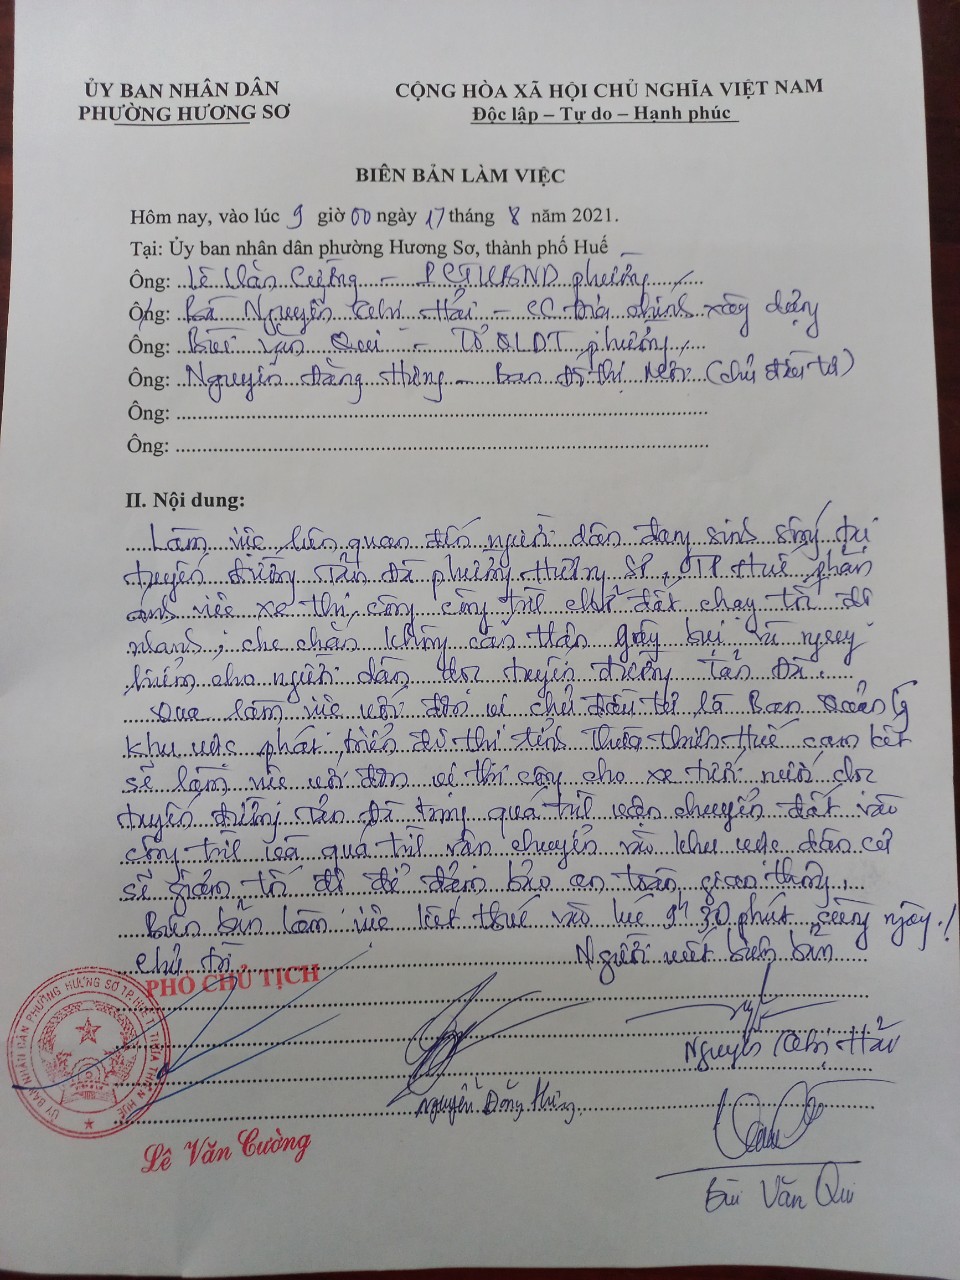 ỦY BAN NHÂN DÂN
PHƯỜNG HƯƠNG SƠ
CỘNG HÒA XÃ HỘI CHỦ NGHĨA VIỆT NAM
Độc lập – Tự do – Hạnh phúc
BIÊN BẢN LÀM VIỆC
Hôm nay, vào lúc 9 giờ 00 ngày 17 tháng 8 năm 2021.
Tại: Ủy ban nhân dân phường Hương Sơ, thành phố Huế
Ông: Lê Văn Cường - PCTUBND phường
Ông: Bà Nguyễn Thị Hải - CC Địa chính xây dựng
Ông: Bùi Văn Qui - Tổ QLĐT phường
Ông: Nguyễn Đăng Hùng - Ban đô thị mới (chủ đầu tư)
Ông:
Ông:
II. Nội dung:
Làm việc liên quan đến người dân đang sinh sống tại
tuyến đường Tản Đà phường Hương Sơ, TP Huế phản
ánh việc xe thi công công trình chở đất chạy tốc độ
nhanh, che chắn không cẩn thận gây bụi và nguy
hiểm cho người dân dọc tuyến đường Tản Đà.
Qua làm việc với đơn vị chủ đầu tư là Ban Quản lý
khu vực phát triển đô thị tỉnh Thừa Thiên Huế cam kết
sẽ làm việc với đơn vị thi công cho xe tưới nước dọc
tuyến đường Tản Đà trong quá trình vận chuyển đất vào
công trình và quá trình vận chuyển vào khu vực dân cư
sẽ giảm tốc độ để đảm bảo an toàn giao thông.
Biên bản làm việc kết thúc vào lúc 9h30 phút cùng ngày./
Chủ trì
Người viết biên bản
PHÓ CHỦ TỊCH
ỦY BAN NHÂN DÂN PHƯỜNG HƯƠNG SƠ TP. HUẾ T. THỪA THIÊN HUẾ
Nguyễn Thị Hải
Nguyễn Đăng Hùng
Lê Văn Cường
Bùi Văn Qui